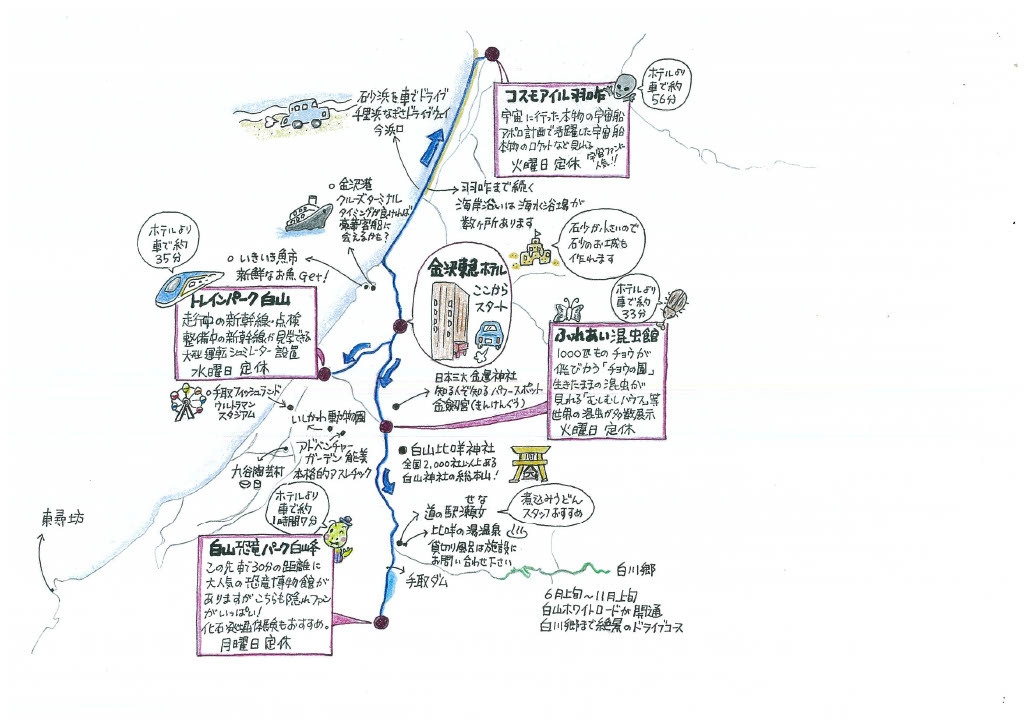 コスモアイル羽咋
宇宙に行った本物の宇宙船
アポロ計画で活躍した宇宙船
本物のロケットなど見れる
宇宙ファンに
人気!!
火曜日 定休
ホテルより
車で約
56分
砂浜を車でドライブ
千里浜なぎさドライブウェイ
今浜口
羽咋まで続く
海岸沿いは海水浴場が
数ヶ所あります
金沢港
クルーズターミナル
タイミングが良ければ
豪華客船に
会えるかも?
石少が小さいので
石少のお城も
作れます
ホテルより
車で約
35分
いきいき魚市
新鮮なお魚Get!
トレインパーク白山
走行中の新幹線・点検
整備中の新幹線が見学できる
大型運転シミュレーター設置
水曜日 定休
金沢東急ホテル
ここから
スタート
ホテルより
車で約
33分
ふれあい昆虫館
1000匹ものチョウが
飛びかう「チョウの園」
生きたままの昆虫が
見れる「むしむしハウス」等
世界の昆虫が多数展示
火曜日 定休
日本三大金運神社
知る人ぞ知るパワースポット
金劔宮(きんけんぐう)
手取フィッシュランド
ウルトラマン
スタジアム
いしかわ動物園
アドベンチャー
ガーデン能美
本格的アスレチック
九谷陶芸村
白山比咩神社
全国2,000社以上ある
白山神社の総本山!
せな
道の駅瀬女
煮込みうどん
スタッフおすすめ
比咩の湯温泉
貸切り風呂は施設に
お問い合わせ下さい
手取ダム
ホテルより
車で約
1時間7分
白山恐竜パーク白峰
この先車で30分の距離に
大人気の恐竜博物館が
ありますがこちらも隠れファン
がいっぱい!
化石発掘体験もおすすめ。
月曜日 定休
東尋坊
白川郷
6月上旬~11月上旬
白山ホワイトロードが開通
白川郷まで絶景のドライブコース